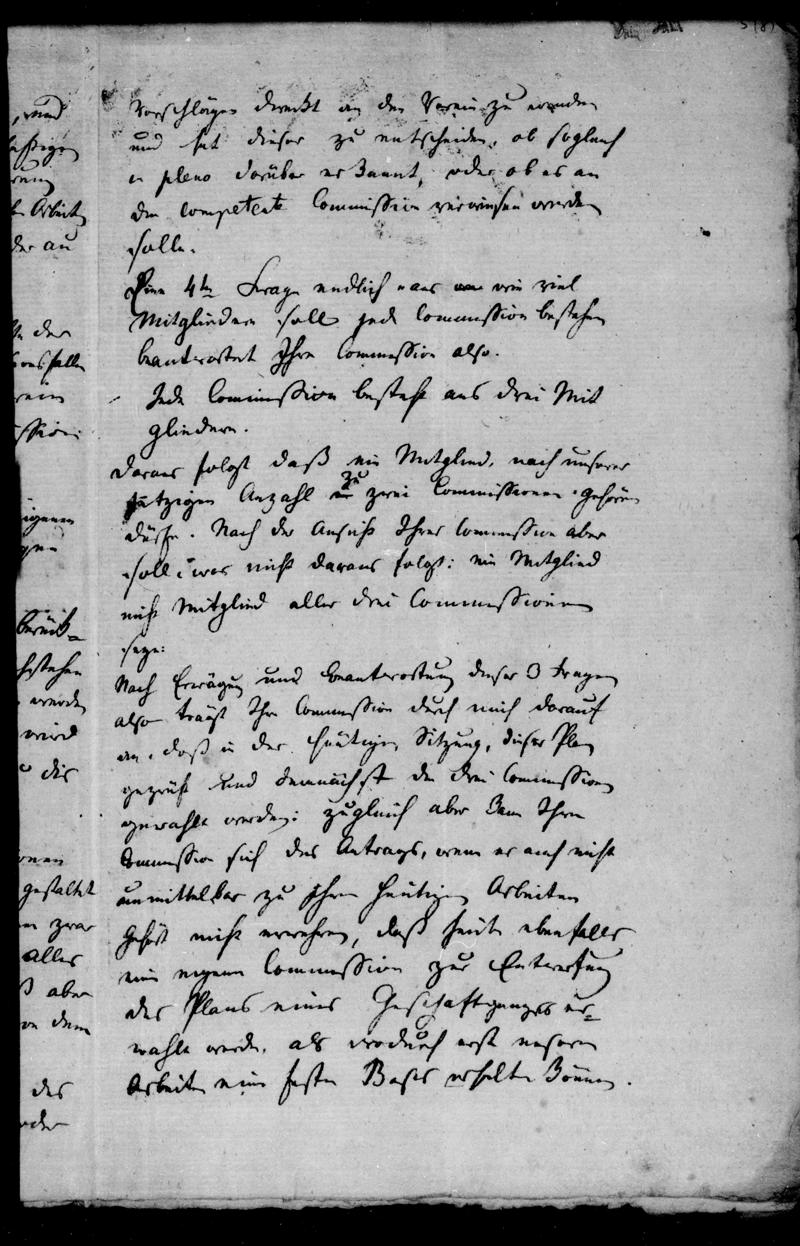 5 (8)
Vorschläge direkt an den Verein zu wenden
und hat dieser zu entscheiden, ob sogleich
in pleno darüber erkannt, oder ob es an
die competente Commission verwiesen werden
solle.
Eine 4te Frage endlich aus wie viel
Mitgliedern soll jede Commission bestehen
beantwortet Ihre Commission also.
Jede Commission besteht aus drei Mit
gliedern.
Daraus folgt daß ein Mitglied, nach unserer
jetzigen Anzahl zu zwei Commissionen gehören
dürfe. Nach der Ansicht Ihrer Commission aber
soll, was nicht daraus folgt: ein Mitglied
nicht Mitglied aller drei Commissionen
seyn.
Nach Erwägung und Beantwortung dieser 3 Fragen
also trägt Ihre Commission durch mich darauf
an, daß in der heutigen Sitzung, dieser Plan
geprüft und demnächst die drei Commissionen
gewählt werden: zugleich aber kann Ihre
Commission sich des Antrags, wenn er auch nicht
unmittelbar zu ihren heutigen Arbeiten
gehört nicht erwehren, daß heute ebenfalls
eine eigene Commission zur Entwerfung
des Plans eines Geschäftsganges er-
wählt werde, als wodurch erst unsere
Arbeiten eine feste Basis erhalten können.
, und
Arbeit
der an
der
gestaltet
zwar
alles
aber
dem
des
oder
werden
wird
die